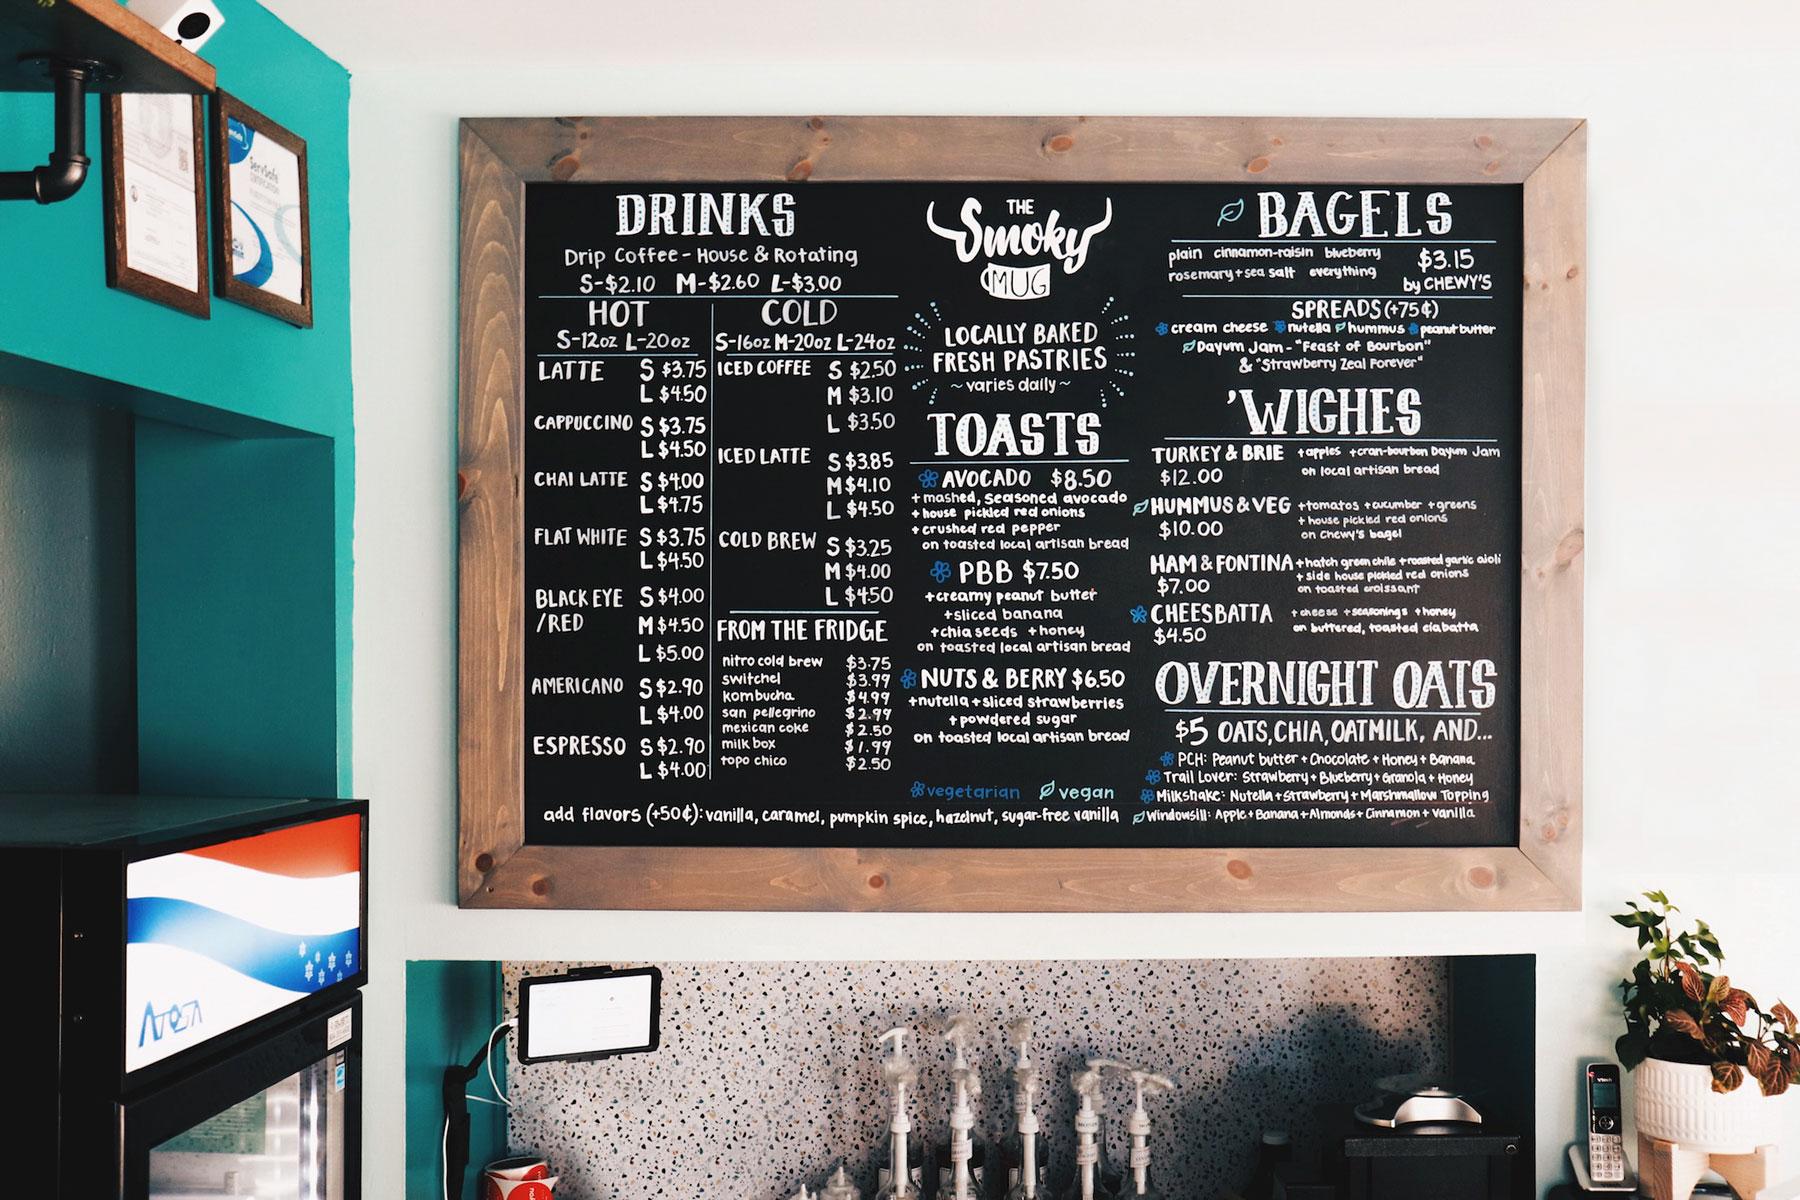 DRINKS
Drip Coffee - House & Rotating
S-$2.10 M-$2.60 L-$3.00
HOT
S-12oz L-20oz
LATTE S $3.75
L $4.50
CAPPUCCINO S $3.75
L $4.50
CHAI LATTE S $4.00
L $4.75
FLAT WHITE S $3.75
L $4.50
BLACK EYE S $4.00
/RED M $4.50
L $5.00
AMERICANO S $2.90
L $4.00
ESPRESSO S $2.90
L $4.00
COLD
S-16oz M-20oz L-24oz
ICED COFFEE S $2.50
M $3.10
L $3.50
ICED LATTE S $3.85
M $4.10
L $4.50
COLD BREW S $3.25
M $4.00
L $4.50
FROM THE FRIDGE
nitro cold brew $3.75
switchel $3.99
kombucha $4.99
san pellegrino $2.99
mexican coke $2.50
milk box $1.99
topo chico $2.50
add flavors (+50¢): vanilla, caramel, pumpkin spice, hazelnut, sugar-free vanilla
THE
Smoky
MUG
LOCALLY BAKED
FRESH PASTRIES
~ varies daily ~
TOASTS
AVOCADO $8.50
+ mashed, seasoned avocado
+ house pickled red onions
+ crushed red pepper
on toasted local artisan bread
PBB $7.50
+ creamy peanut butter
+ sliced banana
+ chia seeds + honey
on toasted local artisan bread
NUTS & BERRY $6.50
+ nutella + sliced strawberries
+ powdered sugar
on toasted local artisan bread
vegetarian vegan
BAGELS
plain cinnamon-raisin blueberry
rosemary + sea salt everything
$3.15
by CHEWY'S
SPREADS (+75¢)
cream cheese nutella hummus peanut butter
Dayum Jam - "Feast of Bourbon"
& "Strawberry Zeal Forever"
'WICHES
TURKEY & BRIE + apples + cran-bourbon Dayum Jam
$12.00 on local artisan bread
HUMMUS & VEG + tomatos + cucumber + greens
$10.00 + house pickled red onions
on Chewy's bagel
HAM & FONTINA + hatch green chile + roasted garlic aioli
$7.00 + side house pickled red onions
on toasted croissant
CHEESBATTA + cheese + seasonings + honey
$4.50 on buttered, toasted ciabatta
OVERNIGHT OATS
$5 OATS, CHIA, OATMILK, AND...
PCH: Peanut butter + Chocolate + Honey + Banana
Trail Lover: Strawberry + Blueberry + Granola + Honey
Milkshake: Nutella + Strawberry + Marshmallow Topping
Windowsill: Apple + Banana + Almonds + Cinnamon + Vanilla
ServSafe
CERTIFICATION
ATOSA
vtech